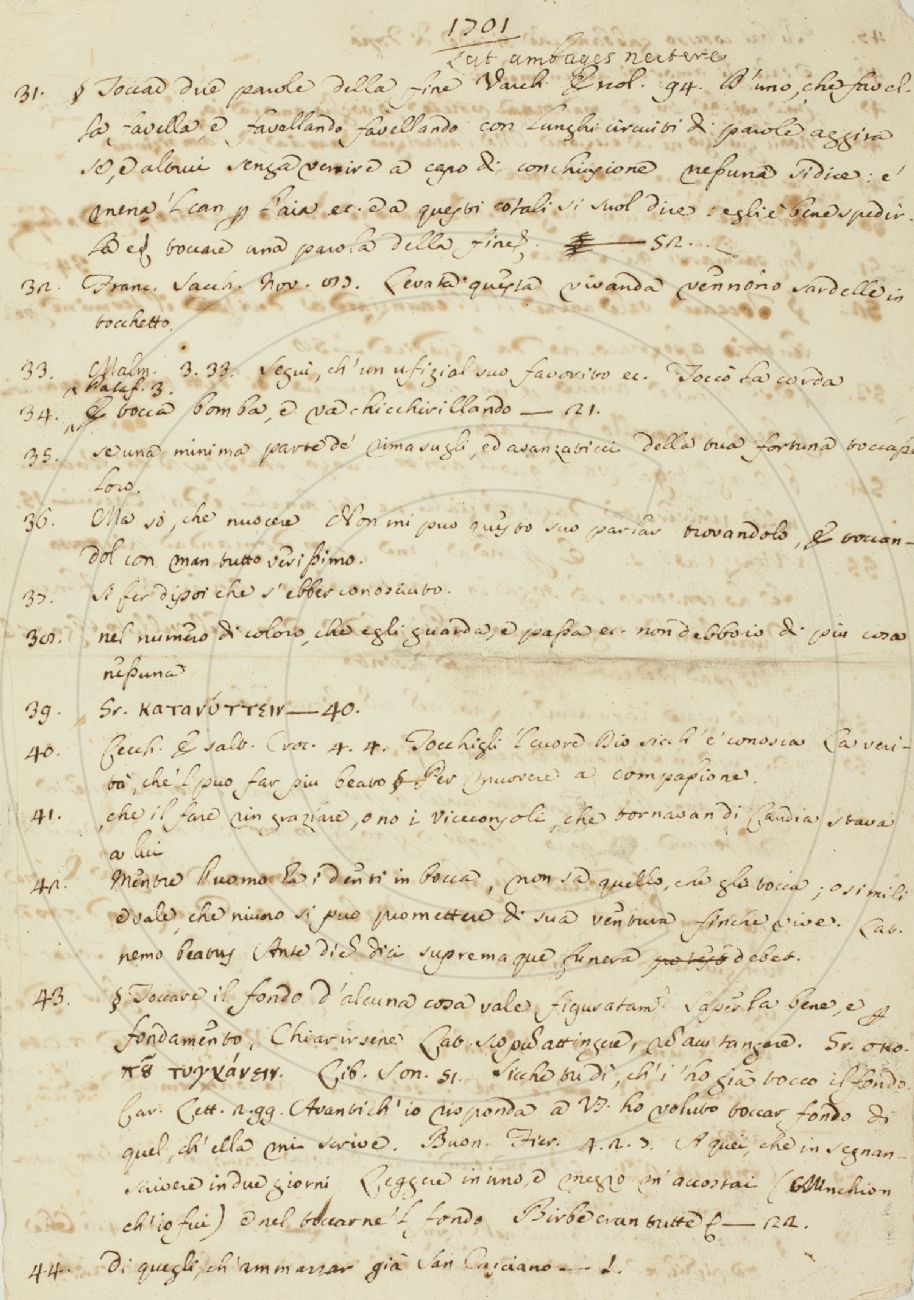 1701
Lat. ambages nectere
31. § Toccar due parole della fine Varch. Ercol. 94. D'uno, che favel-
la, favella, e favellando favellando con lunghi circuiti di parole aggira
se, e altrui senza venire a capo di conchiusione nessuna si dice: e'
mena 'l can p l'aia ec. e a questi cotali si suol dire: egli è bene spedir-
la e toccare una parola della fine. — 52.
32. Franc. Sacch. Nov. Levata questa vivanda vennono sardelle in
tocchetto.
33. Malm. 3. 33. Seguì, ch'un ufizial suo favorito ec. Toccò la corda
Pataf. 3.
34. E tocca bomba, e va chicchirillando — 21.
35. se una minima parte de' rimasugli, ed avanzaticci della tua fortuna toccasse
loro.
36. Ma so, che nuocere Non mi può questo suo parlar trovandolo, E toccan-
dol con man tutto verissimo.
37. si fer dipoi che s'ebber conosciuto.
38. nel numero di coloro, che egli guarda, e passa ec. non debbo io di più cosa
nessuna
39. Gr. κατανύττειν — 40.
40. Cecch. Esalt. Croc. 4. 4. Tocchigli 'l cuore Dio sicch' e' conosca La veri-
tà, che 'l può far più beato § Per muovere a compassione.
41. che il fare ringraziare, o no i Viceconsoli, che tornavan di Candia stava
a lui
42. Mentre l'uomo ha i denti in bocca, non sa quello, che gli tocca; o simili
e vale, che niuno si può promettere di sua ventura finchè vive. Lat.
nemo beatus Ante dici supremaque funera debet.
43. § Toccare il fondo d'alcuna cosa vale figuratam. saperla bene, e p
fondamento, Chiarirsene Lat. scopum attingere, rem acu tangere. Gr. σκο-
πῦ τυγχάνειν. Lib. Son. 51. Sicchè tu dì, ch'i' ho già tocco il fondo.
Car. Lett. 2. 99. Avanti ch'io risponda a V. ho voluto toccar fondo di
quel, ch'ella mi scrive. Buon. Fier. 4. 2. 7. A quei, che insegnan
scrivere in due giorni Leggere in uno, e mezzo m'accostai (Minchion
ch'io fui) e nel toccarne 'l fondo Birbe eran tutte — 22.
44. di quegli, ch'ammazzar già San Casciano — 1.